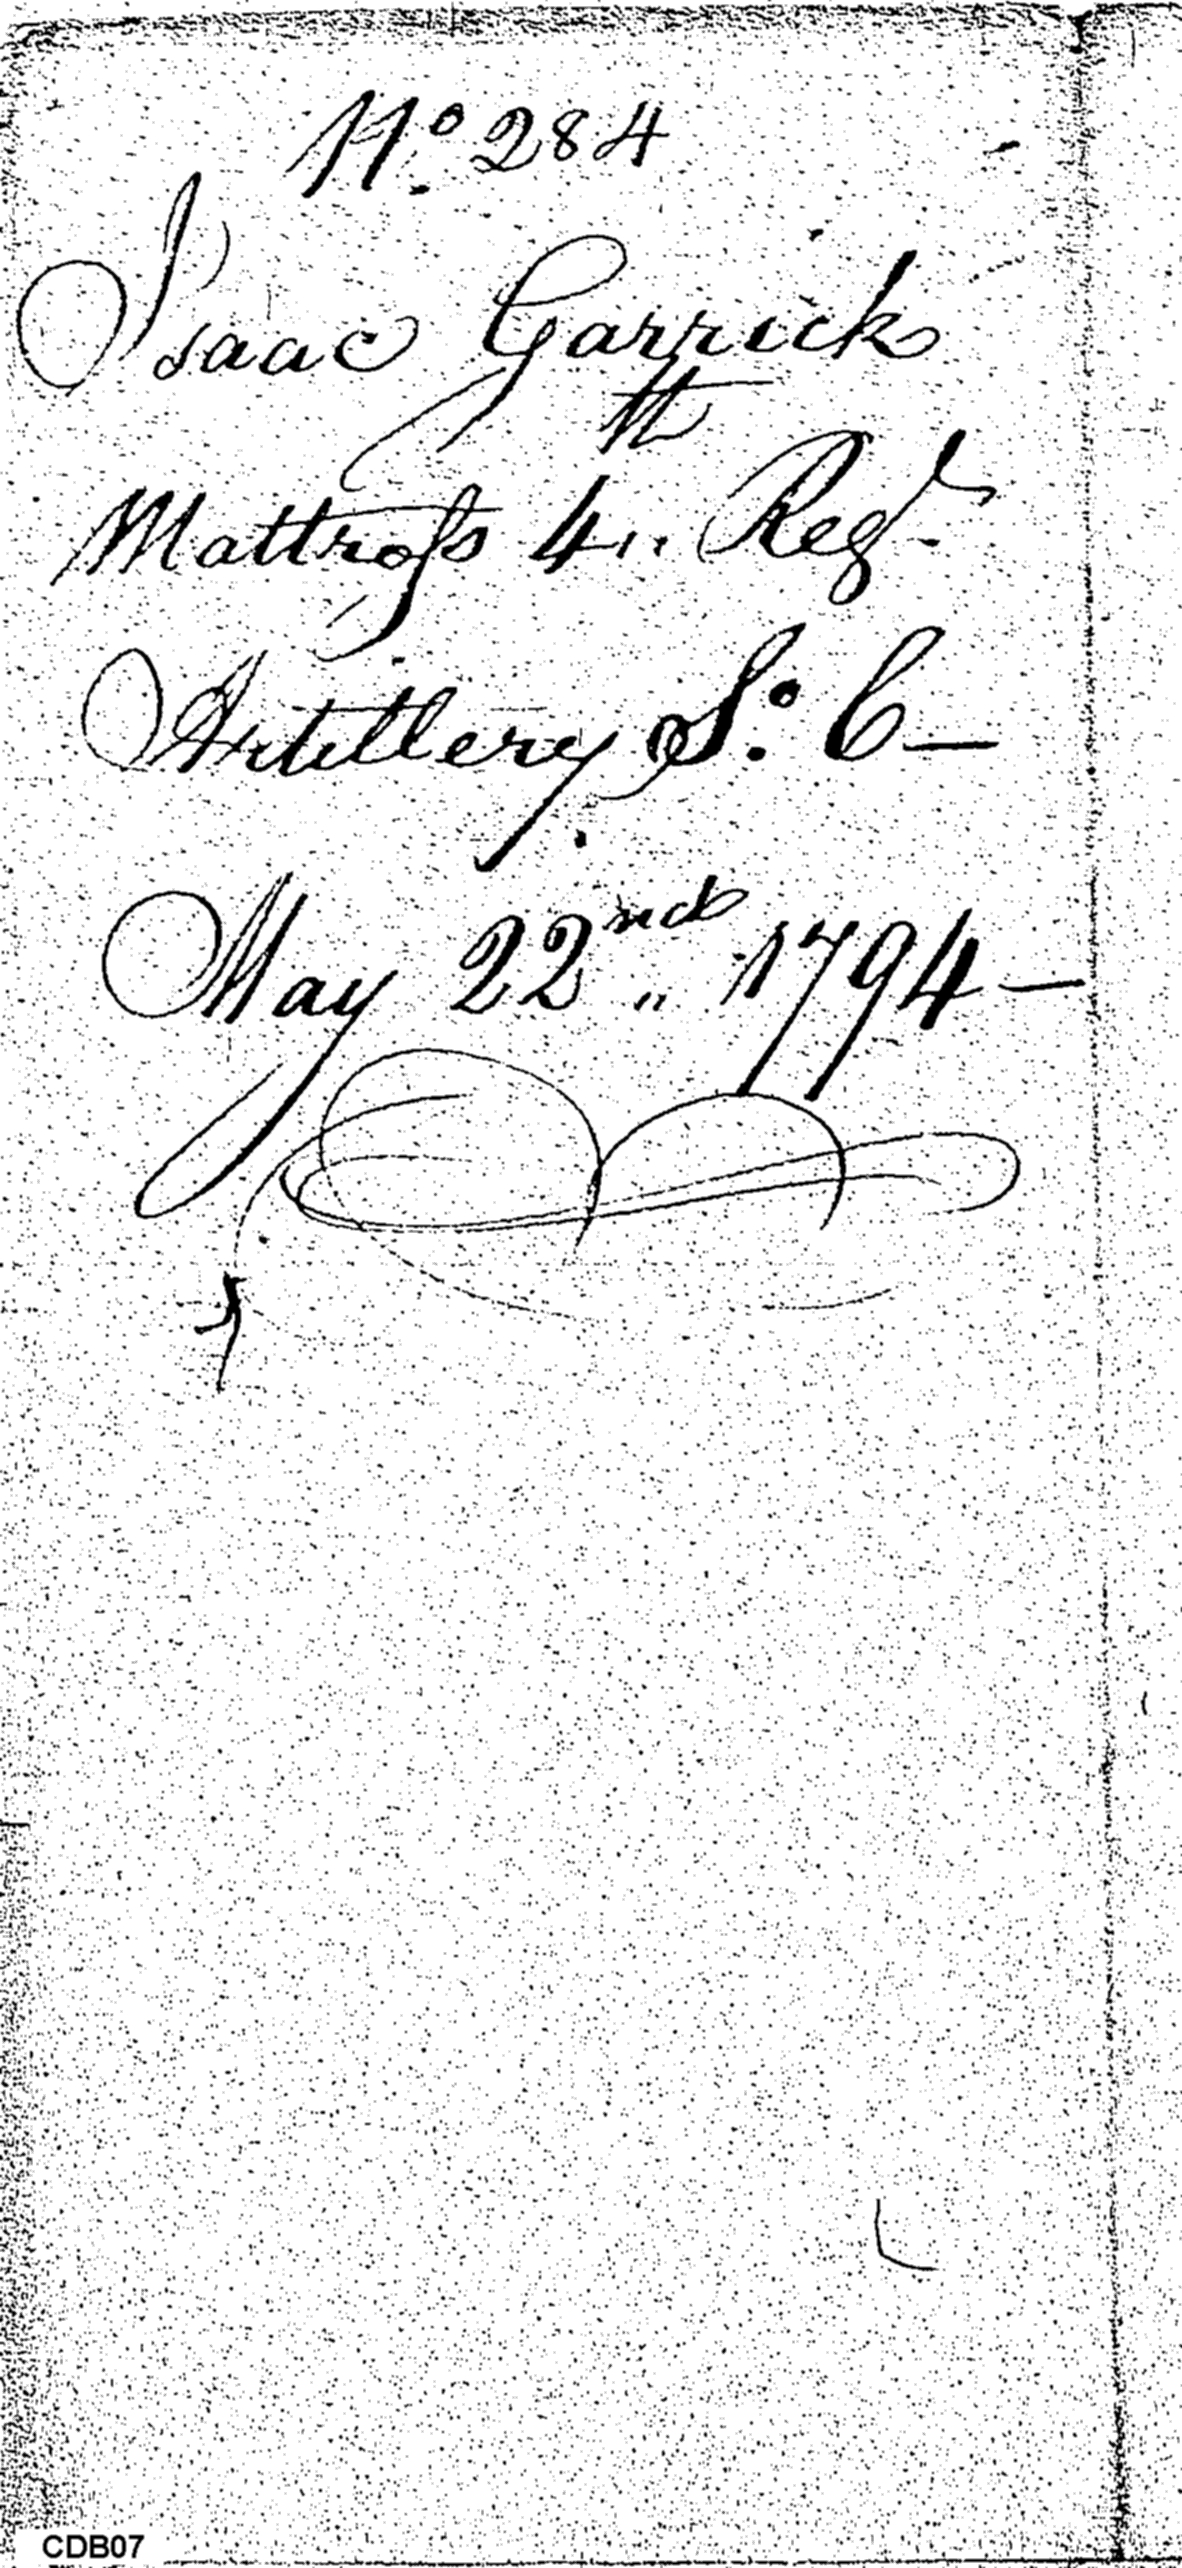 No. 284
Isaac Garrick
Mattross 4th Regt.
Artillery So. C—
May 22nd 1794—
CDB07